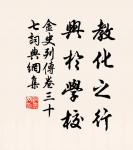 教化之行
興於學校
金史列傳卷三十
七詞典網集